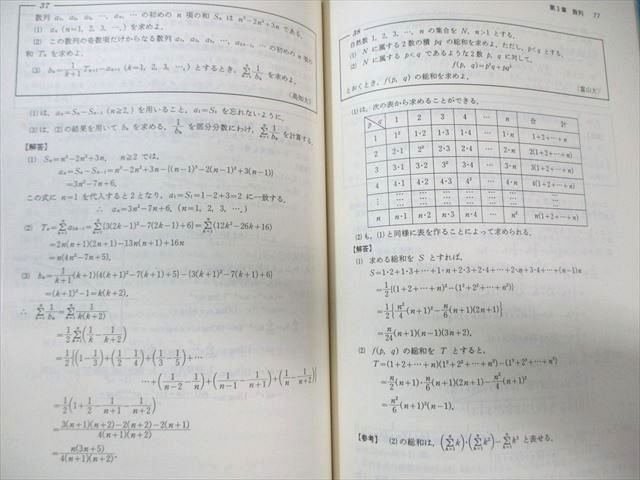 37
数列 a₁, a₂, a₃, …, aₙ, … の初めの n 項の和 Sₙ は n³−2n²+3n である.
(1) aₙ (n=1, 2, 3, …,) を求めよ.
(2) この数列の奇数項だけからなる数列 a₁, a₃, a₅, …, a₂ₙ₋₁, … の初めの n 項の
和 Tₙ を求めよ.
(3) bₖ=1/(k+1) Tₖ₊₁−aₖ₊₁ (k=1, 2, 3, …,) とするとき, Σₖ₌₁ⁿ 1/bₖ を求めよ.
(高知大)
(1) は, aₙ=Sₙ−Sₙ₋₁ (n≧2,) を用いること, a₁=S₁ を忘れないように.
(3) は, (2) の結果を用いて bₖ を求める. 1/bₖ を部分分数にわけ, Σₖ₌₁ⁿ 1/bₖ を計算する.
【解答】
(1) Sₙ=n³−2n²+3n, n≧2 では,
aₙ=Sₙ−Sₙ₋₁=n³−2n²+3n−{(n−1)³−2(n−1)²+3(n−1)}
=3n²−7n+6.
この式に n=1 を代入すると 2 となり, a₁=S₁=1−2+3=2 に一致する.
∴ aₙ=3n²−7n+6. (n=1, 2, 3, …,)
(2) Tₙ=Σₖ₌₁ⁿ a₂ₖ₋₁=Σₖ₌₁ⁿ{3(2k−1)²−7(2k−1)+6}=Σₖ₌₁ⁿ(12k²−26k+16)
=2n(n+1)(2n+1)−13n(n+1)+16n
=n(4n²−7n+5).
(3) bₖ=1/(k+1)(k+1){4(k+1)²−7(k+1)+5}−{3(k+1)²−7(k+1)+6}
=(k+1)²−1=k(k+2).
∴ Σₖ₌₁ⁿ 1/bₖ=Σₖ₌₁ⁿ 1/k(k+2)
=1/2 Σₖ₌₁ⁿ(1/k−1/(k+2))
=1/2{(1−1/3)+(1/2−1/4)+(1/3−1/5)+…
…+(1/(n−2)−1/n)+(1/(n−1)−1/(n+1))+(1/n−1/(n+2))}
=1/2(1+1/2−1/(n+1)−1/(n+2))
=(3(n+1)(n+2)−2(n+2)−2(n+1))/4(n+1)(n+2)
=n(3n+5)/4(n+1)(n+2).
第3章 数列 77
38
自然数 1, 2, 3, …, n の集合を N, n>1 とする.
(1) N に属する 2 数の積 pq の総和を求めよ. ただし, p<q とする.
(2) N に属する p<q であるような 2 数 p, q に対して,
f(p, q)=p²q+pq²
とおくとき, f(p, q) の総和を求めよ.
(富山大)
(1) は, 次の表から求めることができる.
p q 1 2 3 4 … n 合計
1 1² 1·2 1·3 1·4 … 1·n 1+2+…+n
2 2·1 2² 2·3 2·4 … 2·n 2(1+2+…+n)
3 3·1 3·2 3² 3·4 … 3·n 3(1+2+…+n)
4 4·1 4·2 4·3 4² … 4·n 4(1+2+…+n)
… … … … … … … …
n n·1 n·2 n·3 n·4 … n² n(1+2+…+n)
(2) も, (1) と同様に表を作ることによって求められる.
【解答】
(1) 求める総和を S とすれば,
S=1·2+1·3+…+1·n+2·3+2·4+…+2·n+3·4+…+(n−1)n
=1/2{(1+2+…+n)²−(1²+2²+…+n²)}
=1/2{n²/4(n+1)²−n/6(n+1)(2n+1)}
=n/24(n+1)(n−1)(3n+2).
(2) f(p, q) の総和を T とすると,
T=(1+2+…+n)(1²+2²+…+n²)−(1³+2³+…+n³)
=n/2(n+1)·n/6(n+1)(2n+1)−n²/4(n+1)²
=n²/6(n+1)²(n−1).
【参考】 (2) の総和は, (Σₖ₌₁ⁿ k)·(Σₖ₌₁ⁿ k²)−Σₖ₌₁ⁿ k³ と表せる.